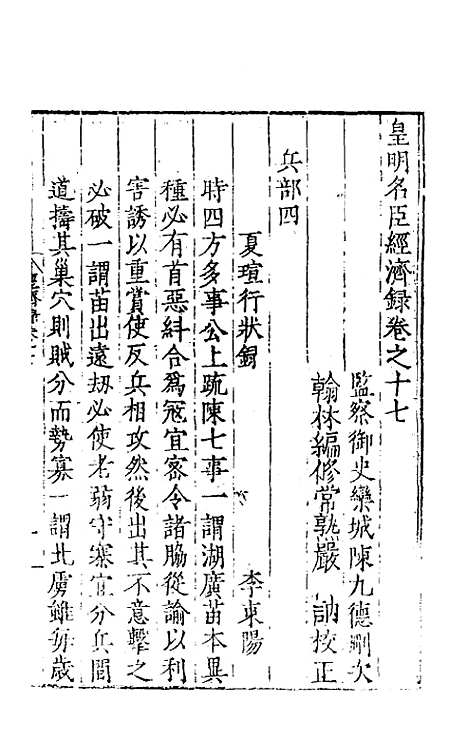 皇明名臣經濟録卷之十七
監察御史欒城陳九德刪次
翰林編修常孰嚴 訥校正
兵部四
夏瑄行狀銅 李東陽
時四方多事公上疏陳七事一謂湖廣苗本異
種必有首惡糾合爲冦宜密令諸脇從諭以利
害誘以重賞使反兵相攻然後出其不意擊之
必破一謂苗出遠刼必使老弱守寨官分兵間
道擣其巢穴則賊分而勢寡一謂北虜雖每歲